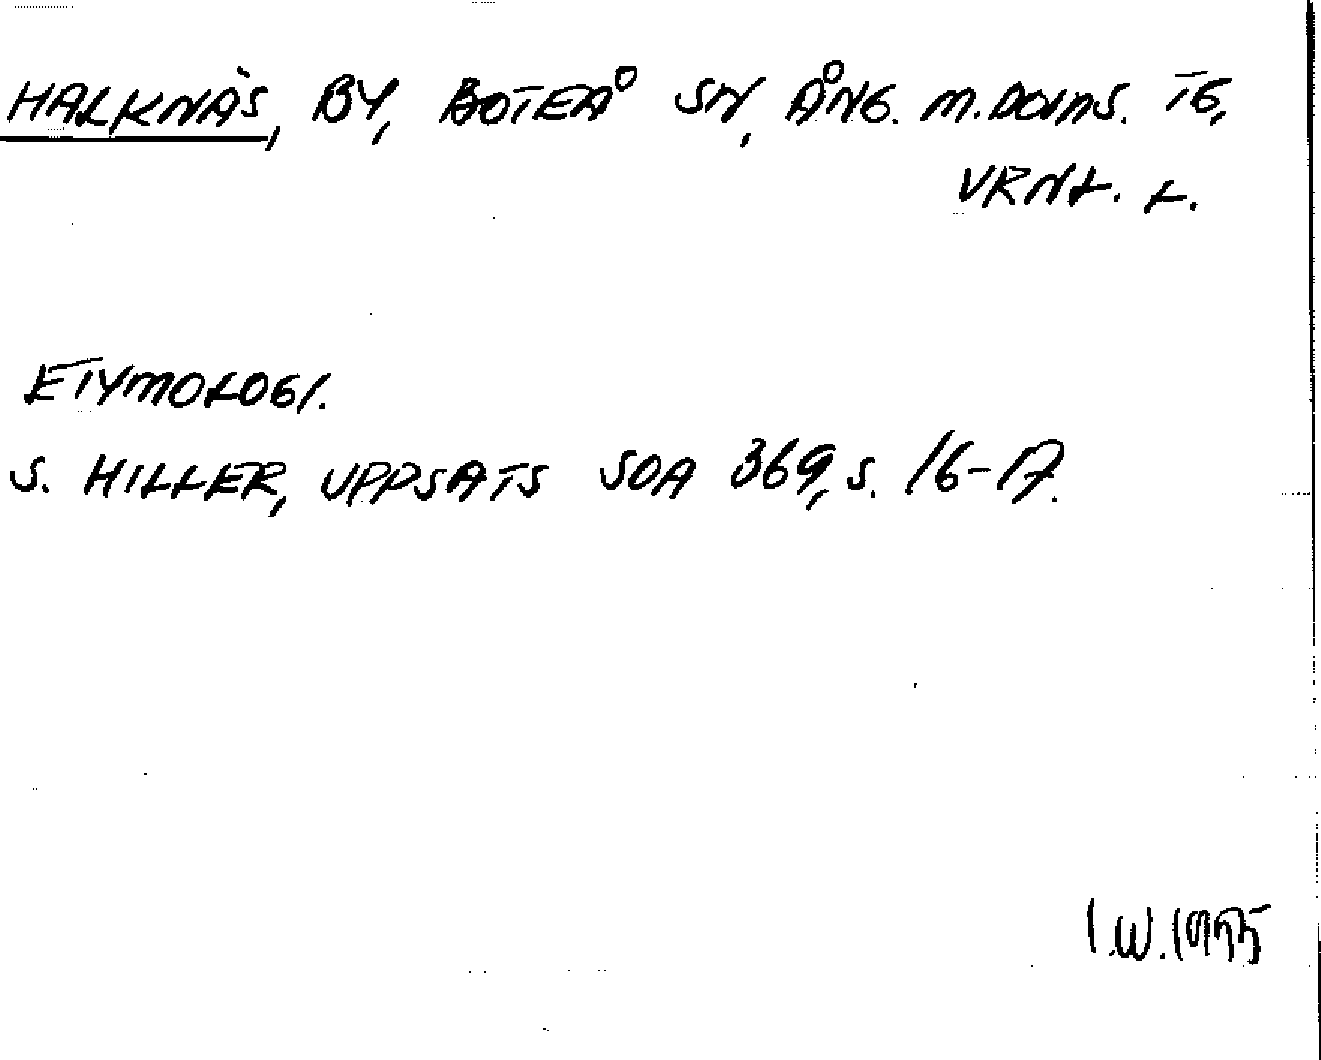 HALKNÄS, BY, BOTEÅ SN, ÅNG. M. DOMS. TG,
VRNL. L.
ETYMOLOGI.
S. HILLER, UPPSATS SOA 369, S. 16-17.
I.W. 1955